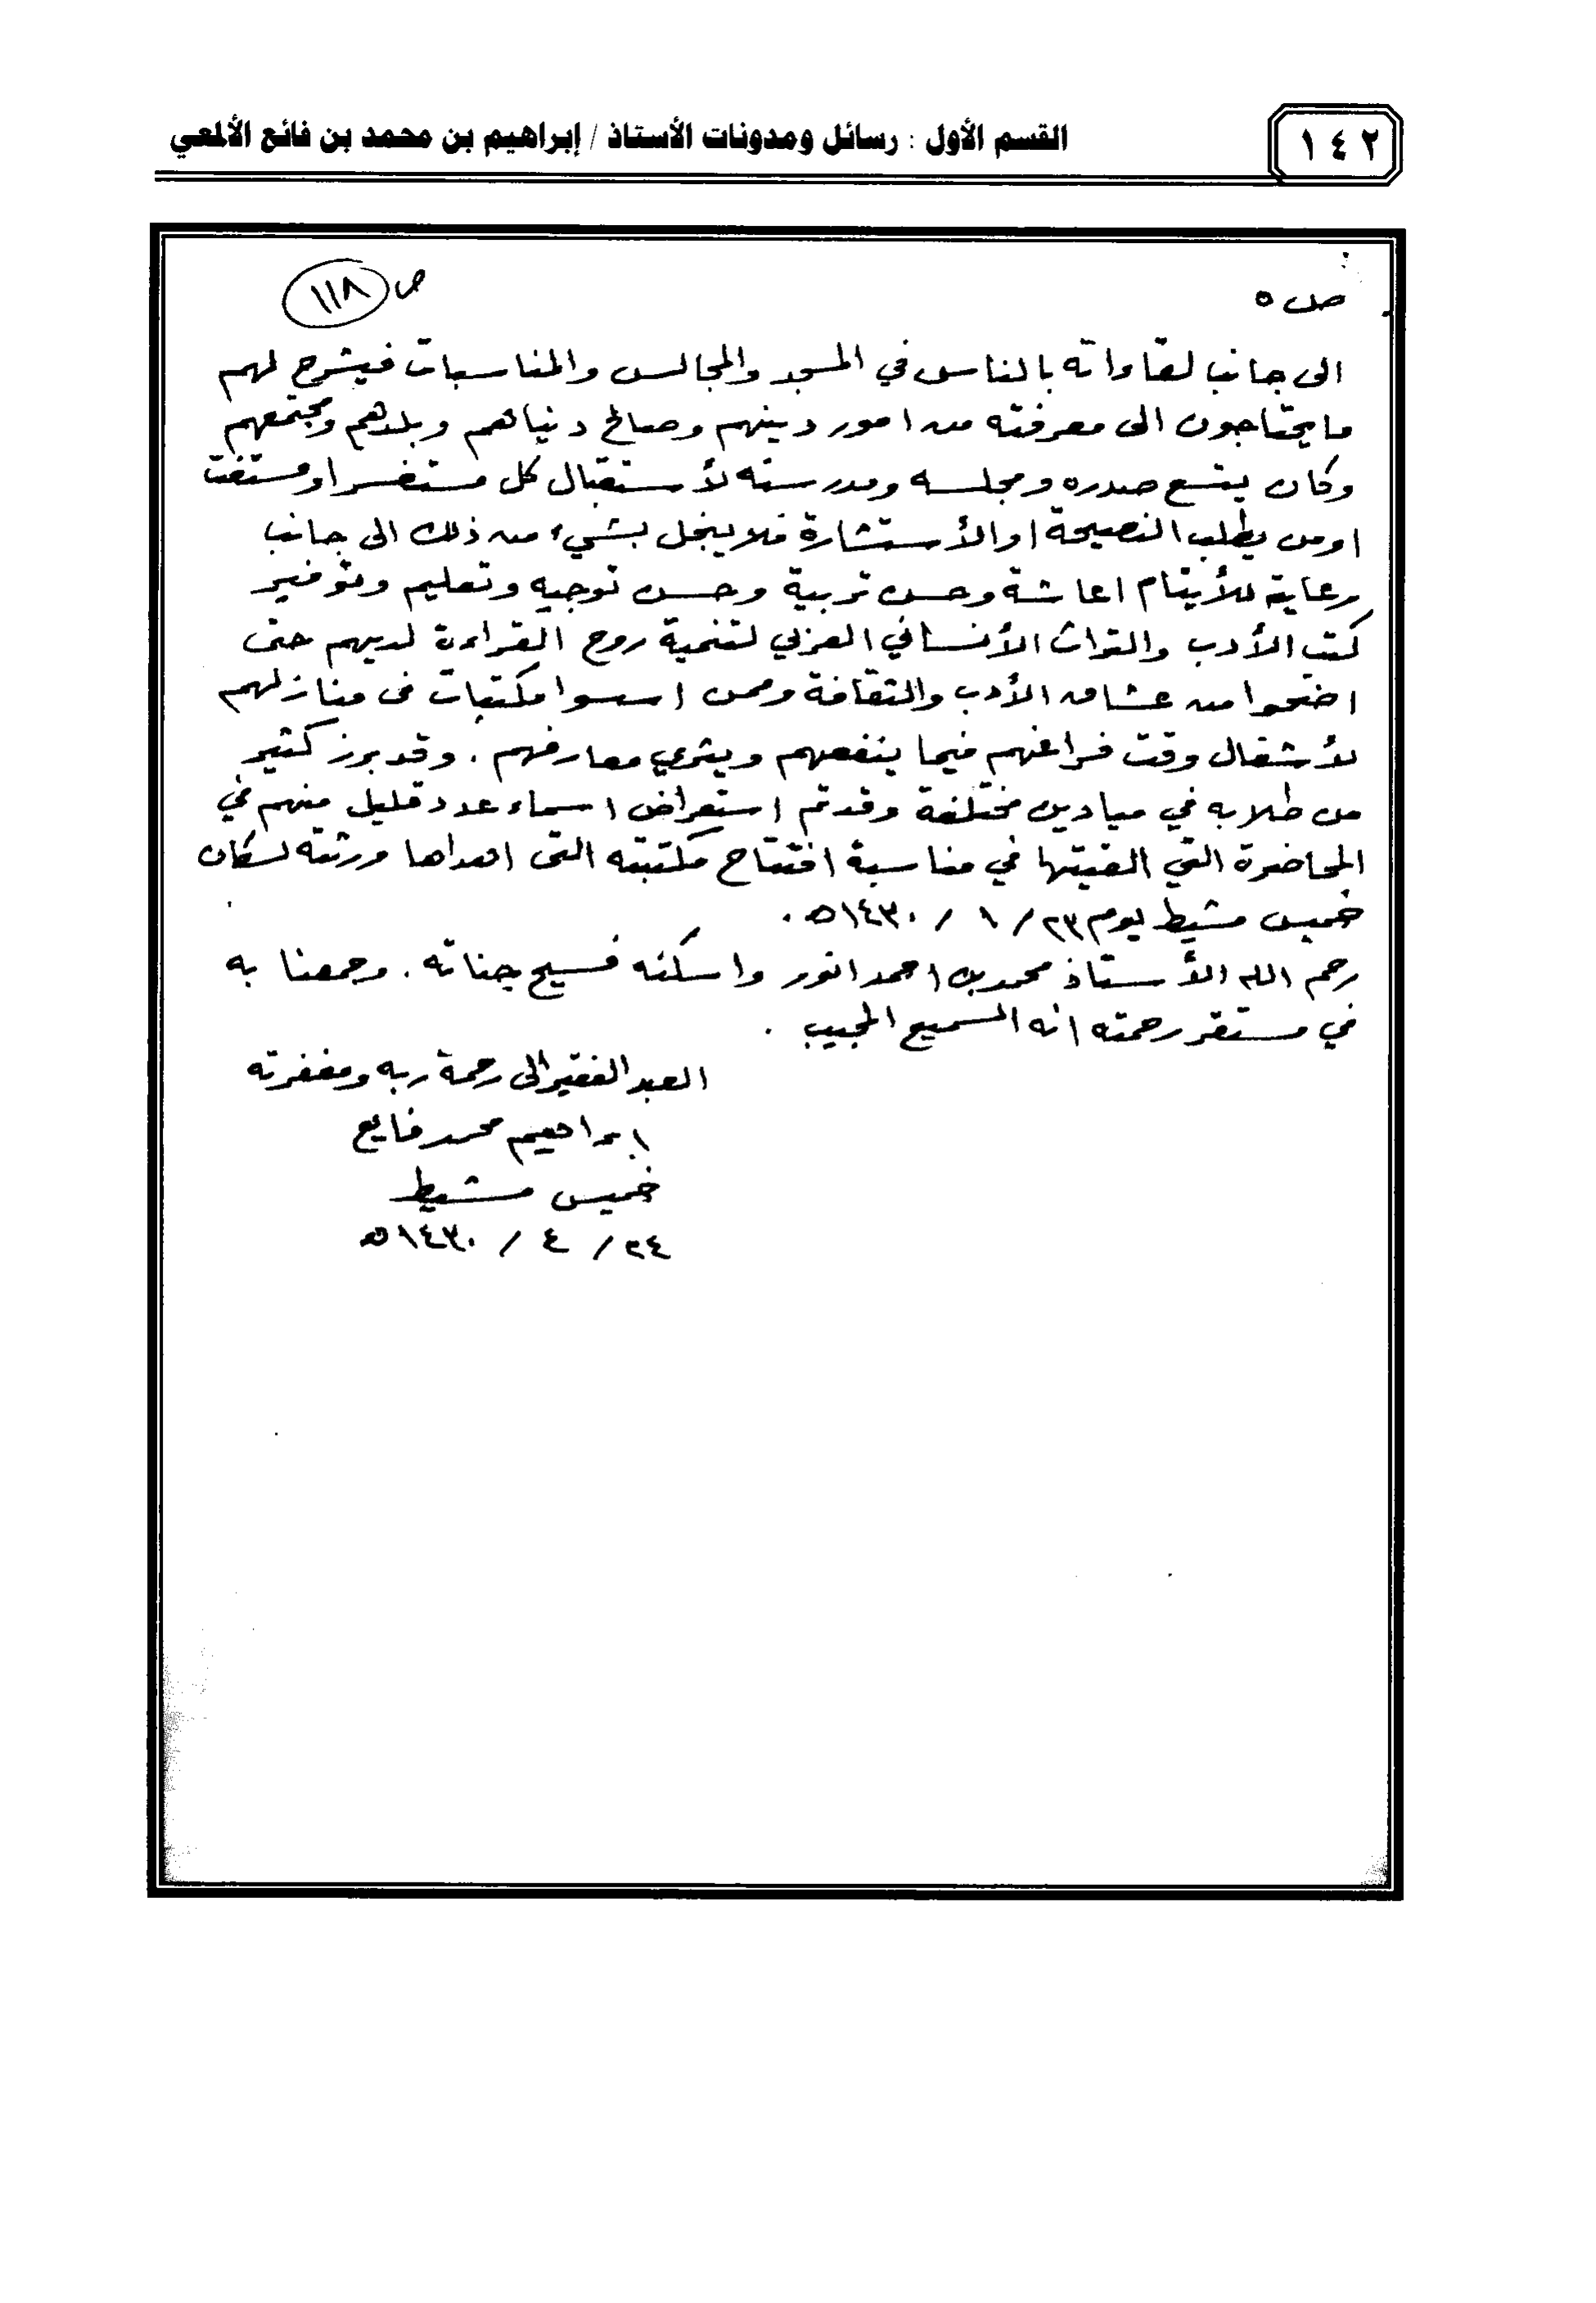 ١٤٢
القسم الأول : رسائل ومدونات الأستاذ / إبراهيم بن محمد بن فائع الألمعي
ص ٥
ص ١١٨
الى جانب لقاءاته بالناس في المسجد والمجالس والمناسبات فيشرح لهم
ما يحتاجون الى معرفته من امور دينهم وصالح دنياهم وبلدهم ومجتمعهم
وكان يتسع صدره ومجلسه ومدرسته لأستقبال كل مستفسر او مستفت
او من يطلب النصيحة او الأستشارة فلا يبخل بشيء من ذلك الى جانب
رعاية للأيتام اعاشة وحسن تربية وحسن توجيه وتعليم وتوفير
كتب الأدب والتراث الأنساني العربي لتنمية روح القراءة لديهم حتى
اضحوا من عشاق الأدب والثقافة وممن اسسوا مكتبات في منازلهم
لأشغال وقت فراغهم فيما ينفعهم ويثري معارفهم . وقد برز كثير
من طلابه في ميادين مختلفة وقد تم استعراض اسماء عدد قليل منهم في
المحاضرة التي القيتها في مناسبة افتتاح مكتبته التى اهداها ورثته لسكان
خميس مشيط يوم ٢٣ / ١ / ١٤٣٠هـ .
رحم الله الأستاذ محمد بن احمد انور واسكنه فسيح جناته . وجمعنا به
في مستقر رحمته انه السميع المجيب .
العبد الفقير الى رحمة ربه ومغفرته
ابراهيم محمد فايع
خميس مشيط
٢٤ / ٤ / ١٤٣٠هـ